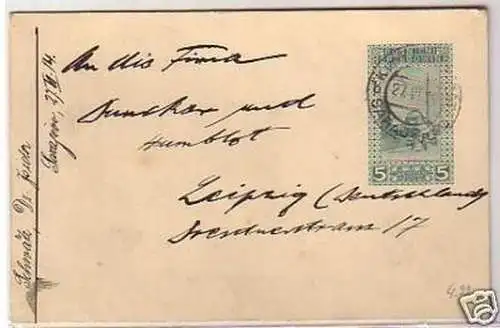 An die Firma
Duncker und
Humblot
Leipzig (Deutschland)
Dresdnerstrasse 17
5 5
Sarajevo, 27
Dr.
ebay